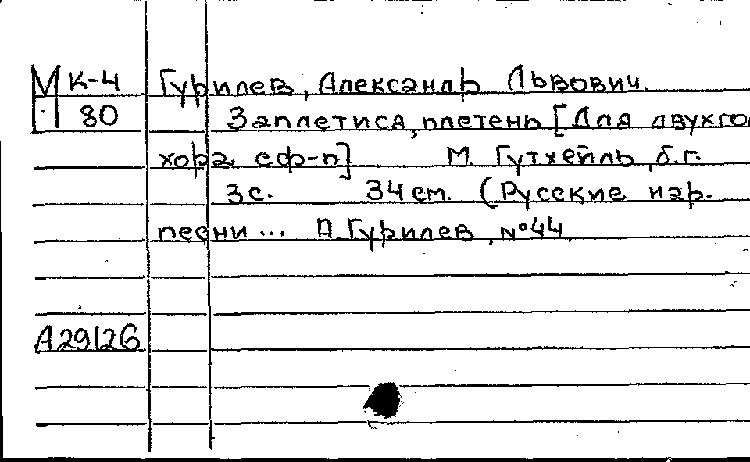 М К-4 Гурилев, Александр Львович.
Г 80 Заплетися, плетень [Для двухго
хора с ф-п] М. Гутхейль, б.г.
3 с. 34 см. (Русские нар.
песни... А. Гурилев, №44
А29126